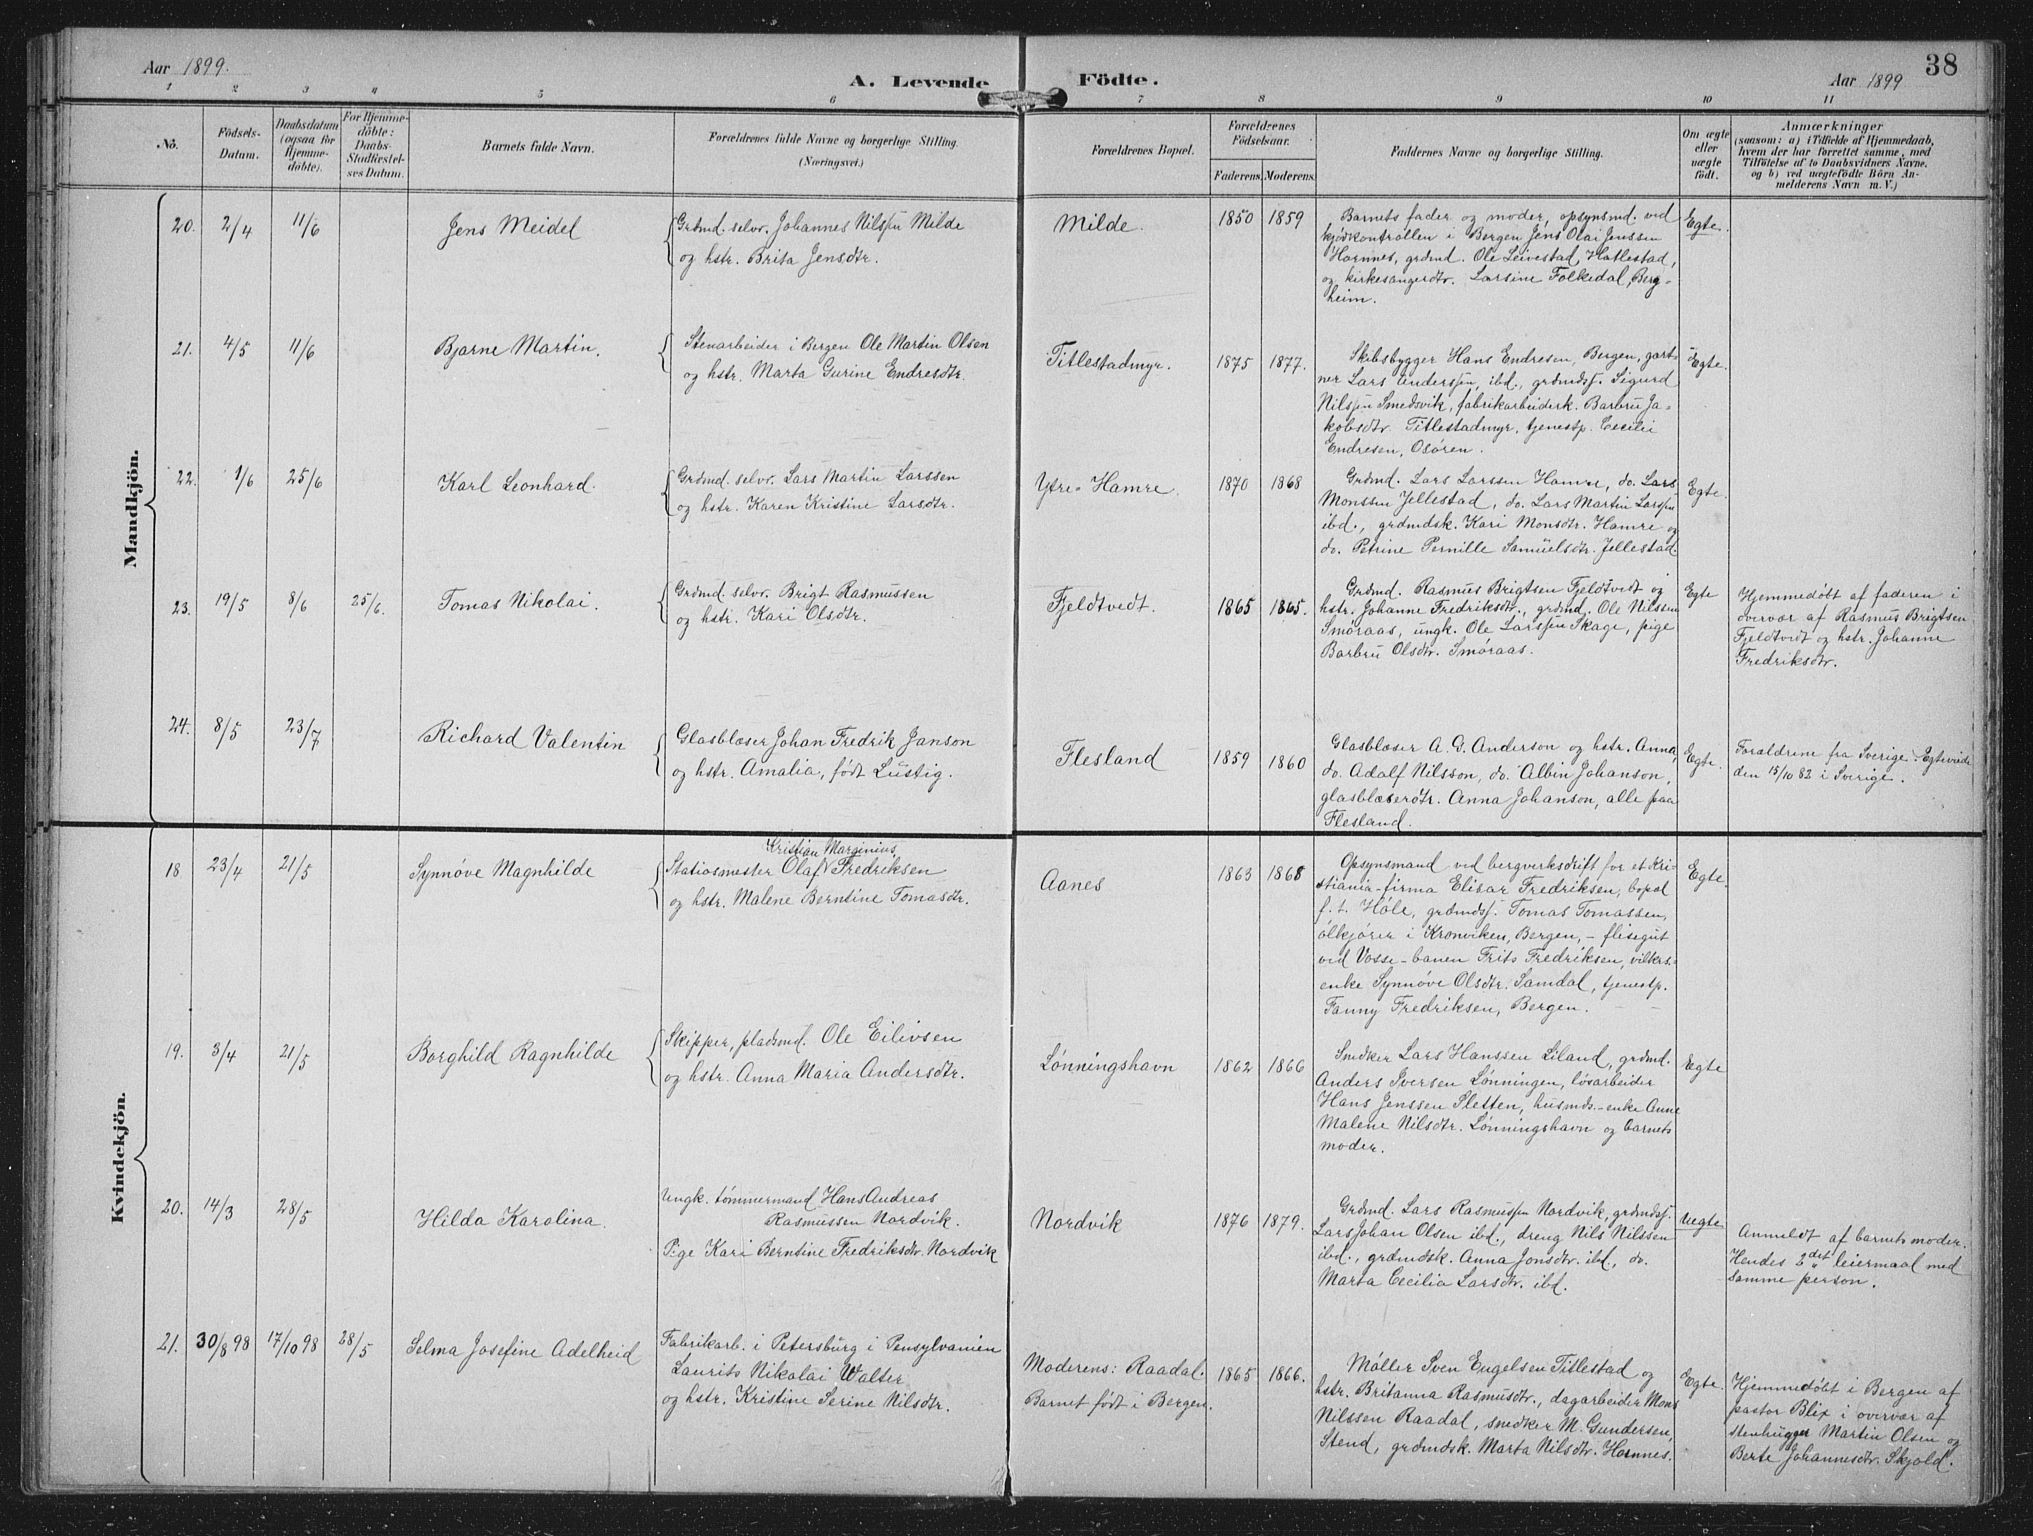 38
Aar 1899.
A. Levende Födte.
Aar 1899
1 2 3 4 5 6 7 8 9 10 11
No.
Födsels-
Datum.
Daabsdatum
(ogsaa for
Hjemme-
döbte).
For Hjemme-
döbte:
Daabs-
Stadfæstel-
ses Datum.
Barnets fulde Navn.
Forældrenes fulde Navne og borgerlige Stilling.
(Næringsvei.)
Forældrenes Bopæl.
Forældrenes
Födselsaar.
Faderens. Moderens.
Faddernes Navne og borgerlige Stilling.
Om ægte
eller
uægte
födt.
Anmærkninger
(saasom: a) i Tilfælde af Hjemmedaab,
hvem der har forrettet samme, med
Tilföielse af to Daabsvidners Navne,
og b) ved uægtefödte Börn An-
melderens Navn m. V.)
Mandkjön.
20. 2/4 11/6
Jens Meidel
Grdmd. selv. Johannes Nilssen Milde
og hstr. Brita Jensdtr.
Milde.
1850 1859
Barnets fader og moder, opsynsmd. ved
kjødkontrollen i Bergen Jens Olai Jenssen
Hornnes, grdmd. Ole Leivestad, Hatlestad,
og kirkesangerdtr. Larsine Folkedal, Berg-
heim.
Egte.
21. 4/5 11/6
Bjarne Martin.
Stenarbeider i Bergen Ole Martin Olsen
og hstr. Marta Gurine Endresdtr.
Titlestadmyr.
1875 1877.
Skibsbygger Hans Endresen, Bergen, gart-
ner Lars Anderssen, ibd., grdmdsf. Sigurd
Nilssen Smedsvik, fabrikarbeiderk. Barbru Ja-
kobsdtr. Titlestadmyr, tjenestp. Cecilie
Endresen, Osören.
Egte.
22. 1/6 25/6
Karl Leonhard.
Grdmd. selv. Lars Martin Larssen
og hstr. Karen Kristine Larsdtr.
Ytre-Hamre.
1870 1868
Grdmd. Lars Larssen Hamre, do. Lars
Monssen Jellestad, do. Lars Martin Larssen
ibd., grdmdsk. Kari Monsdtr. Hamre og
do. Petrine Pernille Samuelsdtr. Jellestad.
Egte.
23. 19/5 8/6 25/6.
Tomas Nikolai.
Grdmd. selv. Brigt Rasmussen
og hstr. Kari Olsdtr.
Fjeldtvedt.
1865 1865.
Grdmd. Rasmus Brigtsen Fjeldtvedt og
hstr. Johanne Fredriksdtr., grdmd. Ole Nilssen
Smøraas, ungk. Ole Larssen Skage, pige
Barbru Olsdtr. Smøraas.
Egte
Hjemmedøbt af faderen i
overvær af Rasmus Brigtsen
Fjeldtvedt og hstr. Johanne
Fredriksdtr.
24. 8/5 23/7
Richard Valentin
Glasblæser Johan Fredrik Janson
og hstr. Amalia, født Lustig.
Flesland
1859 1860
Glasblæser A. G. Anderson og hstr. Anna,
do. Adalf Nilsson, do. Albin Johanson,
glasblæserdtr. Anna Johanson, alle paa
Flesland.
Egte.
Foraldrene fra Sverige. Egteviede
den 15/10 82 i Sverige.
Kvindekjön.
18 23/4 21/5
Synnøve Magnhilde
Kristian Marginius,
Statiosmester Olaf Fredriksen
og hstr. Malene Berntine Tomasdtr.
Aanes
1863 1868
Opsynsmand ved bergverksdrift for et Kri-
stiania-firma Elisar Fredriksen, bopæl
f. t. Høle, grdmdsf. Tomas Tomassen,
ølkjører i Kronviken, Bergen, – flisegut
ved Vosse-banen Frits Fredriksen, vilkrs-
enke Synnøve Olsdtr. Samdal, tjenestp.
Fanny Fredriksen, Bergen.
Egte.
19. 3/4 21/5
Borghild Ragnhilde
Skipper, pladsmd. Ole Eilivsen
og hstr. Anna Maria Andersdtr.
Lønningshavn
1862 1866
Smedker Lars Hanssen Liland, grdmd.
Anders Iversen Lønningen, løsarbeider
Hans Jenssen Sletten, husmds.-enke Anne
Malene Nilsdtr. Lønningshavn og barnets
moder.
Egte
20. 14/3 28/5
Hilda Karolina.
Ungk. tømmermand Hans Andreas
Rasmussen Nordvik.
Pige Kari Berntine Fredriksdtr. Nordvik
Nordvik
1876 1879.
Grdmd. Lars Rasmussen Nordvik, grdmdsf.
Lars Johan Olsen ibd., dreng Nils Nilssen
ibd., grdmdsk. Anna Jonsdtr. ibd., do.
Marta Cecilia Larsdtr. ibd.
Uegte
Anmeldt af barnets moder.
Hendes 2det leiermaal med
samme person.
21. 30/8 98 17/10 98 28/5
Selma Josefine Adelheid
Fabrikarb. i Petersburg i Pensylvanien
Laurits Nikolai Walter
og hstr. Kristine Serine Nilsdtr.
Moderens: Raadal.
Barnet født i Bergen.
1865 1866.
Møller Sven Engelsen Titlestad og
hstr. Britanna Rasmusdtr., dagarbeider Mons
Nilssen Raadal, smedker M. Gundersen,
Stend, grdmdsk. Marta Nilsdtr. Hornnes.
Egte.
Hjemmedøbt i Bergen af
pastor Blix i overvær af
stenhugger Martin Olsen og
Berte Johannesdtr. Skjold.